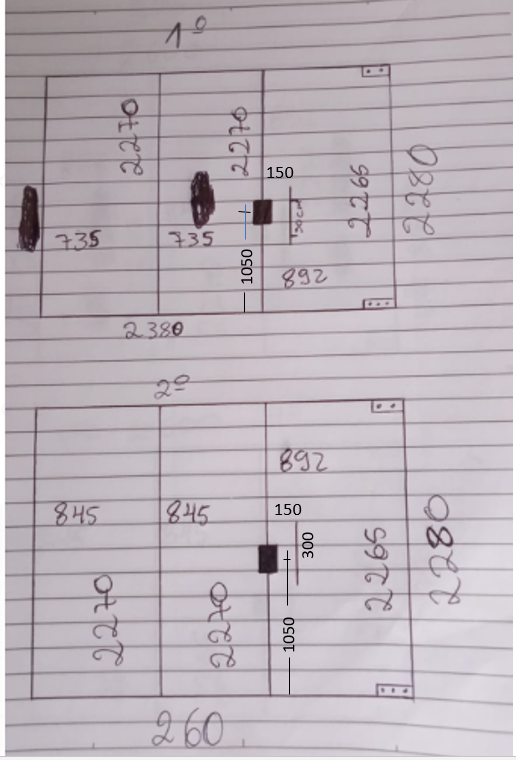 1º
2270
2270
150
2265
2280
30cm
735
735
1050
892
2380
2º
892
845
845
150
300
2265
2280
2270
2270
1050
260